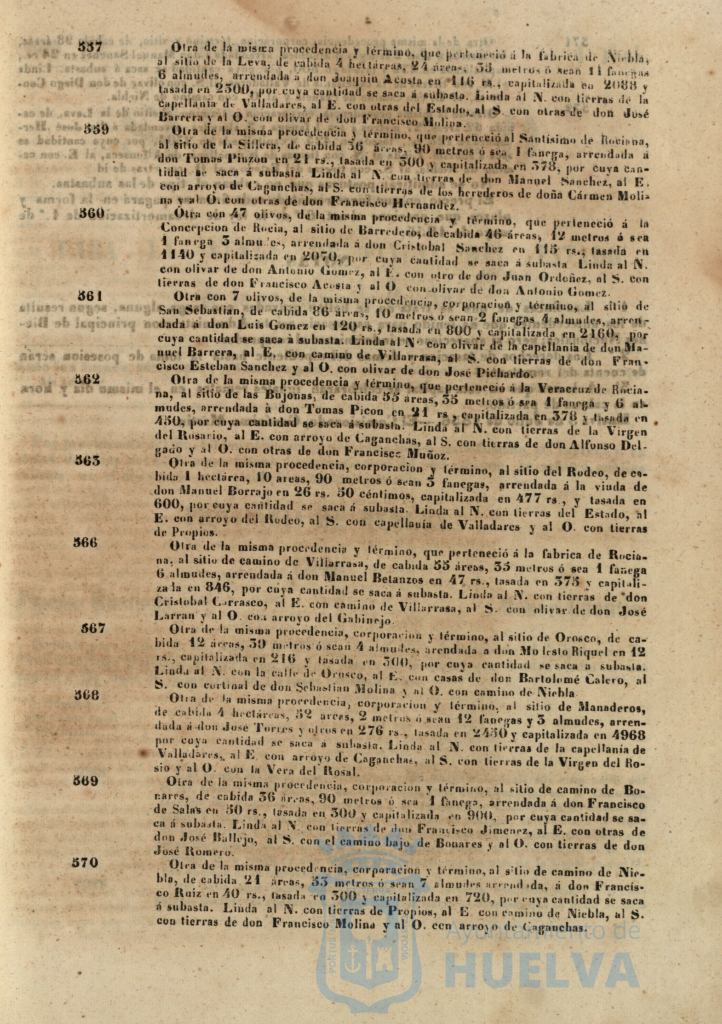 557 Otra de la misma procedencia y término, que perteneció á la fabrica de Niebla,
al sitio de la Leva, de cabida 4 hectáreas, 24 áreas, 33 metros ó sean 11 fanegas
6 almudes, arrendada á don Joaquin Acosta en 116 rs., capitalizada en 2088 y
tasada en 2300, por cuya cantidad se saca á subasta. Linda al N. con tierras de la
capellania de Valladares, al E. con otras del Estado, al S. con otras de don José
Barrera y al O. con olivar de don Francisco Molina.
559 Otra de la misma procedencia y término, que perteneció al Santísimo de Rociana,
al sitio de la Sillera, de cabida 36 áreas, 90 metros ó sea 1 fanega, arrendada á
don Tomas Pinzon en 21 rs., tasada en 300 y capitalizada en 378, por cuya can-
tidad se saca á subasta Linda al N. con tierras de don Manuel Sanchez, al E.
con arroyo de Caganchas, al S. con tierras de los herederos de doña Cármen Moli-
na y al O. con otras de don Francisco Hernandez.
560 Otra con 47 olivos, de la misma procedencia y término, que perteneció á la
Concepcion de Rocia, al sitio de Barredero, de cabida 46 áreas, 12 metros ó sea
1 fanega 3 almudes, arrendada á don Cristobal Sanchez en 115 rs., tasada en
1140 y capitalizada en 2070, por cuya cantidad se saca á subasta Linda al N.
con olivar de don Antonio Gomez, al E. con otro de don Juan Ordoñez, al S. con
tierras de don Francisco Acosta y al O con olivar de don Antonio Gomez.
561 Otra con 7 olivos, de la misma procedencia, corporacion y término, al sitio de
San Sebastian, de cabida 86 áreas, 10 metros ó sean 2 fanegas 4 almudes, arren-
dada á don Luis Gomez en 120 rs., tasada en 800 y capitalizada en 2160, por
cuya cantidad se saca á subasta. Linda al N. con olivar de la capellania de don Ma-
nuel Barrera, al E. con camino de Villarrasa, al S. con tierras de don Fran-
cisco Esteban Sanchez y al O. con olivar de don José Pichardo.
562 Otra de la misma procedencia y término, que perteneció á la Veracruz de Rocia-
na, al sitio de las Bujonas, de cabida 55 áreas, 35 metros ó sea 1 fanega y 6 al-
mudes, arrendada á don Tomas Picon en 21 rs, capitalizada en 378 y tasada en
450, por cuya cantidad se saca á subasta. Linda al N. con tierras de la Virgen
del Rosario, al E. con arroyo de Caganchas, al S. con tierras de don Alfonso Del-
gado y al O. con otras de don Francisco Muñoz.
563 Otra de la misma procedencia, corporacion y término, al sitio del Rodeo, de ca-
bida 1 hectárea, 10 áreas, 90 metros ó sean 3 fanegas, arrendada á la viuda de
don Manuel Borrajo en 26 rs. 50 céntimos, capitalizada en 477 rs, y tasada en
600, por cuya cantidad se saca á subasta. Linda al N. con tierras del Estado, al
E. con arroyo del Rodeo, al S. con capellanía de Valladares y al O. con tierras
de Propios.
566 Otra de la misma procedencia y término, que perteneció á la fabrica de Rocia-
na, al sitio de camino de Villarrasa, de cabida 55 áreas, 35 metros ó sea 1 fanega
6 almudes, arrendada á don Manuel Betanzos en 47 rs., tasada en 375 y capitali-
zada en 846, por cuya cantidad se saca á subasta. Linda al N. con tierras de don
Cristobal Carrasco, al E. con camino de Villarrasa, al S. con olivar de don José
Larran y al O. con arroyo del Gabinejo.
567 Otra de la misma procedencia, corporacion y término, al sitio de Orosco, de ca-
bida 12 áreas, 39 metros ó sean 4 almudes, arrendada a don Molesto Riquel en 12
rs., capitalizada en 216 y tasada en 300, por cuya cantidad se saca a subasta.
Linda al N. con la calle de Orosco, al E. con casas de don Bartolomé Calero, al
S. con cortinal de don Sebastian Molina y al O. con camino de Niebla.
568 Otra de la misma procedencia, corporacion y término, al sitio de Manaderos,
de cabida 4 hectáreas, 52 areas, 2 metros ó sean 12 fanegas y 3 almudes, arren-
dada á don José Torres y otros en 276 rs., tasada en 2450 y capitalizada en 4968
por cuya cantidad se saca á subasta. Linda al N. con tierras de la capellanía de
Valladares, al E. con arroyo de Caganchas, al S. con tierras de la Virgen del Ro-
sio y al O. con la Vera del Rosal.
569 Otra de la misma procedencia, corporacion y término, al sitio de camino de Bo-
nares, de cabida 36 áreas, 90 metros ó sea 1 fanega, arrendada á don Francisco
de Salas en 50 rs., tasada en 300 y capitalizada en 900, por cuya cantidad se sa-
ca á subasta. Linda al N. con tierras de don Francisco Jimenez, al E. con otras de
don José Ballejo, al S. con el camino bajo de Bonares y al O. con tierras de don
José Romero.
570 Otra de la misma procedencia, corporacion y término, al sitio de camino de Nie-
bla, de cabida 21 áreas, 53 metros ó sean 7 almudes arrendada, á don Francis-
co Ruiz en 40 rs., tasada en 300 y capitalizada en 720, por cuya cantidad se saca
á subasta. Linda al N. con tierras de Propios, al E. con camino de Niebla, al S.
con tierras de don Francisco Molina y al O. con arroyo de Caganchas.
Ayuntamiento de
HUELVA